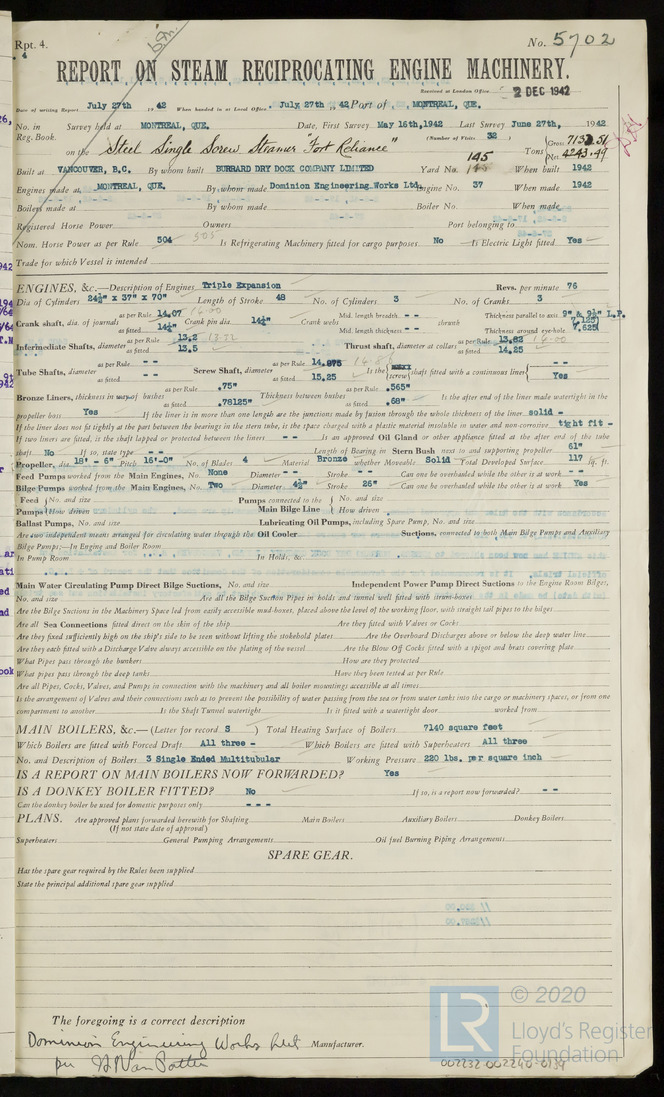 Rpt. 4. No. 5702
REPORT ON STEAM RECIPROCATING ENGINE MACHINERY.
Received at London Office 2 DEC 1942
Date of writing Report July 27th 1942 When handed in at Local Office July 27th 1942 Port of MONTREAL, QUE.
No. in Reg. Book. Survey held at MONTREAL, QUE. Date, First Survey May 16th, 1942 Last Survey June 27th, 1942
(Number of Visits 32)
on the Steel Single Screw Steamer "Fort Reliance" Tons Gross 7132.51 Net 4243.49
Built at VANCOUVER, B.C. By whom built BURRARD DRY DOCK COMPANY LIMITED Yard No. 145 When built 1942
Engines made at MONTREAL, QUE. By whom made Dominion Engineering Works Ltd. Engine No. 37 When made 1942
Boilers made at By whom made Boiler No. When made
Registered Horse Power Owners Port belonging to
Nom. Horse Power as per Rule 504 505 Is Refrigerating Machinery fitted for cargo purposes No Is Electric Light fitted Yes
Trade for which Vessel is intended
ENGINES, &c.—Description of Engines Triple Expansion Revs. per minute 76
Dia of Cylinders 24½" x 37" x 70" Length of Stroke 48 No. of Cylinders 3 No. of Cranks 3
Crank shaft, dia. of journals as per Rule 14.07 as fitted 14¼" Crank pin dia. 14¼" Crank webs Mid. length breadth - - Mid. length thickness - - shrunk Thickness parallel to axis 9" & 9½" L.P. Thickness around eye-hole 7.125 7.625
Intermediate Shafts, diameter as per Rule 13.2 as fitted 13.5 Thrust shaft, diameter at collars as per Rule 13.82 as fitted 14.25
Tube Shafts, diameter as per Rule - - as fitted - - Screw Shaft, diameter as per Rule 14.875 as fitted 15.25 Is the screw shaft fitted with a continuous liner - - Yes
Bronze Liners, thickness in way of bushes as per Rule .75" as fitted .78125" Thickness between bushes as per Rule .565" as fitted .68" Is the after end of the liner made watertight in the
propeller boss Yes If the liner is in more than one length are the junctions made by fusion through the whole thickness of the liner solid -
If the liner does not fit tightly at the part between the bearings in the stern tube, is the space charged with a plastic material insoluble in water and non-corrosive tight fit -
If two liners are fitted, is the shaft lapped or protected between the liners - - Is an approved Oil Gland or other appliance fitted at the after end of the tube
shaft No If so, state type - - Length of Bearing in Stern Bush next to and supporting propeller 61"
Propeller, dia. 18' - 6" Pitch 16'-0" No. of Blades 4 Material Bronze whether Moveable Solid Total Developed Surface 117 sq. ft.
Feed Pumps worked from the Main Engines, No. None Diameter - - Stroke - - Can one be overhauled while the other is at work - -
Bilge Pumps worked from the Main Engines, No. Two Diameter 4½" Stroke 26" Can one be overhauled while the other is at work Yes
Feed Pumps No. and size How driven Pumps connected to the Main Bilge Line No. and size How driven
Ballast Pumps, No. and size Lubricating Oil Pumps, including Spare Pump, No. and size
Are two independent means arranged for circulating water through the Oil Cooler Suctions, connected to both Main Bilge Pumps and Auxiliary
Bilge Pumps;—In Engine and Boiler Room
In Pump Room In Holds, &c.
Main Water Circulating Pump Direct Bilge Suctions, No. and size Independent Power Pump Direct Suctions to the Engine Room Bilges,
No. and size Are all the Bilge Suction Pipes in holds and tunnel well fitted with strum-boxes
Are the Bilge Suctions in the Machinery Space led from easily accessible mud-boxes, placed above the level of the working floor, with straight tail pipes to the bilges
Are all Sea Connections fitted direct on the skin of the ship Are they fitted with Valves or Cocks
Are they fixed sufficiently high on the ship's side to be seen without lifting the stokehold plates Are the Overboard Discharges above or below the deep water line
Are they each fitted with a Discharge Valve always accessible on the plating of the vessel Are the Blow Off Cocks fitted with a spigot and brass covering plate
What Pipes pass through the bunkers How are they protected
What pipes pass through the deep tanks Have they been tested as per Rule
Are all Pipes, Cocks, Valves, and Pumps in connection with the machinery and all boiler mountings accessible at all times
Is the arrangement of Valves and their connections such as to prevent the possibility of water passing from the sea or from water tanks into the cargo or machinery spaces, or from one
compartment to another Is the Shaft Tunnel watertight Is it fitted with a watertight door worked from
MAIN BOILERS, &c.—(Letter for record S) Total Heating Surface of Boilers 7140 square feet
Which Boilers are fitted with Forced Draft All three - Which Boilers are fitted with Superheaters All three
No. and Description of Boilers 3 Single Ended Multitubular Working Pressure 220 lbs. per square inch
IS A REPORT ON MAIN BOILERS NOW FORWARDED? Yes
IS A DONKEY BOILER FITTED? No If so, is a report now forwarded? - -
Can the donkey boiler be used for domestic purposes only - - -
PLANS. Are approved plans forwarded herewith for Shafting Main Boilers Auxiliary Boilers Donkey Boilers
(If not state date of approval)
Superheaters General Pumping Arrangements Oil fuel Burning Piping Arrangements
SPARE GEAR.
Has the spare gear required by the Rules been supplied
State the principal additional spare gear supplied
The foregoing is a correct description
Dominion Engineering Works Ltd Manufacturer.
per
LR © 2020
Lloyd's Register
Foundation
002232-002240-0139